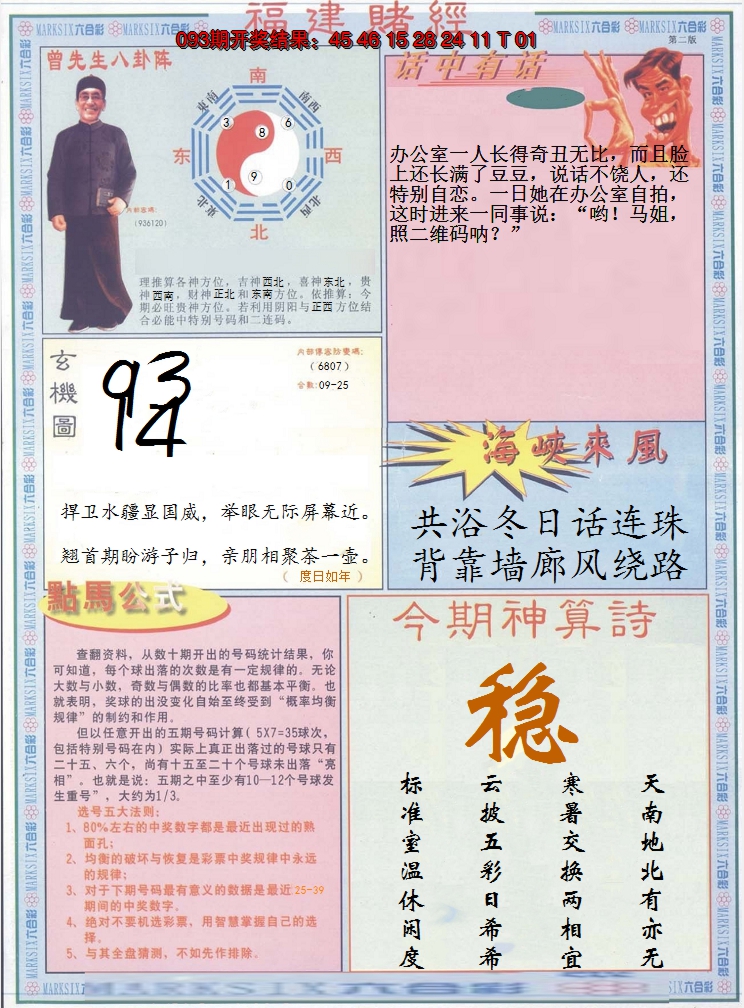 福建賭經
093期开奖结果：45 46 15 28 24 11 T 01
MARKSIX六合彩
第二版
曾先生八卦阵
南
东南
南西
3
8
6
东
西
1
9
0
東北
北西
北
内部密碼:
(936120)
理推算各神方位，吉神西北，喜神东北，贵
神西南，财神正北和东南方位。依推算：今
期必旺贵神方位。若利用阴阳与正西方位结
合必能中特别号码和二连码。
话中有话
办公室一人长得奇丑无比，而且脸
上还长满了豆豆，说话不饶人，还
特别自恋。一日她在办公室自拍，
这时进来一同事说：“哟！马姐，
照二维码呐？”
玄機圖
93
14
内部傳容防雙碼:
(6807)
合数:09-25
捍卫水疆显国威，举眼无际屏幕近。
翘首期盼游子归，亲朋相聚茶一壶。
（ 度日如年 ）
海峽來風
共浴冬日话连珠
背靠墙廊风绕路
點馬公式
查翻资料，从数十期开出的号码统计结果，你
可知道，每个球出落的次数是有一定规律的。无论
大数与小数，奇数与偶数的比率也都基本平衡。也
就表明，奖球的出没变化自始至终受到“概率均衡
规律”的制约和作用。
但以任意开出的五期号码计算( 5X7=35球次，
包括特别号码在内) 实际上真正出落过的号球只有
二十五、六个，尚有十五至二十个号球未出落“亮
相”。也就是说：五期之中至少有10—12个号球发
生重号”，大约为1/3。
选号五大法则：
1、80%左右的中奖数字都是最近出现过的熟
面孔；
2、均衡的破坏与恢复是彩票中奖规律中永远
的规律；
3、对于下期号码最有意义的数据是最近25-39
期间的中奖数字。
4、绝对不要机选彩票，用智慧掌握自己的选
择。
5、与其全盘猜测，不如先作排除。
今期神算詩
稳
天南地北有亦无
寒暑交换两相宜
云披五彩日希希
标准室温休闲度